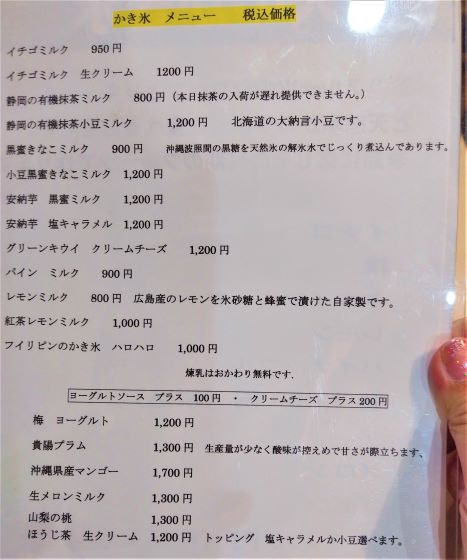 かき氷 メニュー 税込価格
イチゴミルク 950円
イチゴミルク 生クリーム 1200円
静岡の有機抹茶ミルク 800円（本日抹茶の入荷が遅れ提供できません。）
静岡の有機抹茶小豆ミルク 1,200円 北海道の大納言小豆です。
黒蜜きなこミルク 900円 沖縄波照間の黒糖を天然氷の解氷水でじっくり煮込んであります。
小豆黒蜜きなこミルク 1,200円
安納芋 黒蜜ミルク 1,200円
安納芋 塩キャラメル 1,200円
グリーンキウイ クリームチーズ 1,200円
パイン ミルク 900円
レモンミルク 800円 広島産のレモンを氷砂糖と蜂蜜で漬けた自家製です。
紅茶レモンミルク 1,000円
フイリピンのかき氷 ハロハロ 1,000円
煉乳はおかわり無料です、
ヨーグルトソース プラス 100円 ・ クリームチーズ プラス200円
梅 ヨーグルト 1,200円
貴陽プラム 1,300円 生産量が少なく酸味が控えめで甘さが際立ちます、
沖縄県産マンゴー 1,700円
生メロンミルク 1,300円
山梨の桃 1,300円
ほうじ茶 生クリーム 1,200円 トッピング 塩キャラメルか小豆選べます。